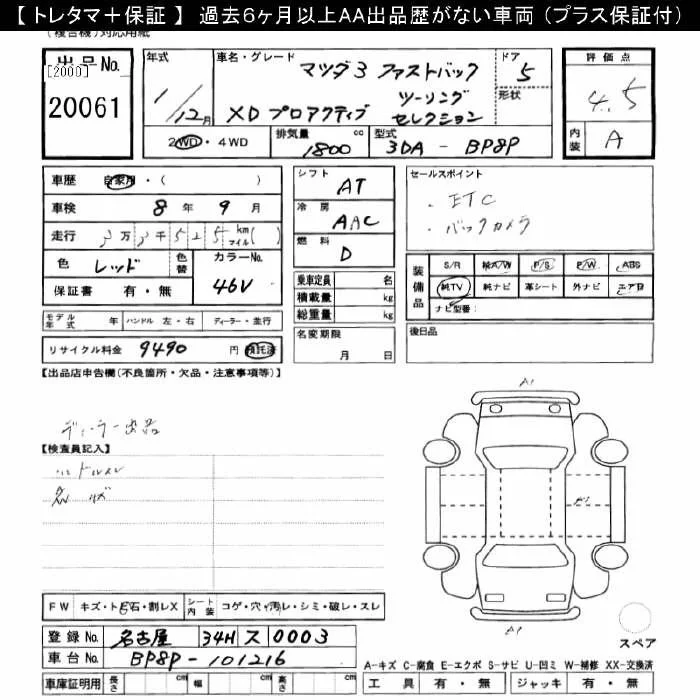 【 トレタマ＋保証 】 過去6ヶ月以上AA出品歴がない車両 (プラス保証付)
(複合機)対応用紙
出品No.
[2000]
20061
年式
1/12月
車名・グレード
マツダ3 ファストバック
XD プロアクティブ ツーリング
セレクション
ドア
5
形状
評価点
4.5
内装
A
2WD・4WD
排気量
1800
cc
型式
3DA - BP8P
車歴
自家用・( )
車検
8 年 9 月
走行
3万3千525 km マイル( )
色
レッド
色替
カラーNo.
46V
保証書
有・無
シフト
AT
冷房
AAC
燃料
D
乗車定員
名
積載量
kg
総重量
kg
名変期限
月 日
セールスポイント
・ETC
・バックカメラ
装備品
S/R 純A/W P/S P/W ABS
純TV 純ナビ 革シート 外ナビ エアB
ナビ型番:
後日品
モデル年式
年
ハンドル 左・右
ディーラー・並行
リサイクル料金
9490
円
預託済
【出品店申告欄(不良箇所・欠品・注意事項等)】
ディーラー出品
【検査員記入】
ハンドルスレ
A1
A1
FW
キズ・ト E石・割レX
シート内装
コゲ・穴・汚レ・シミ・破レ・スレ
登録No.
名古屋 34H ス 0003
車台No.
BP8P-101216
車庫証明用
長さ
cm
幅
cm
高さ
cm
スペア
A-キズ C-腐食 E-エクボ S-サビ U-凹ミ W-補修 XX-交換済
工具
有・無
ジャッキ
有・無